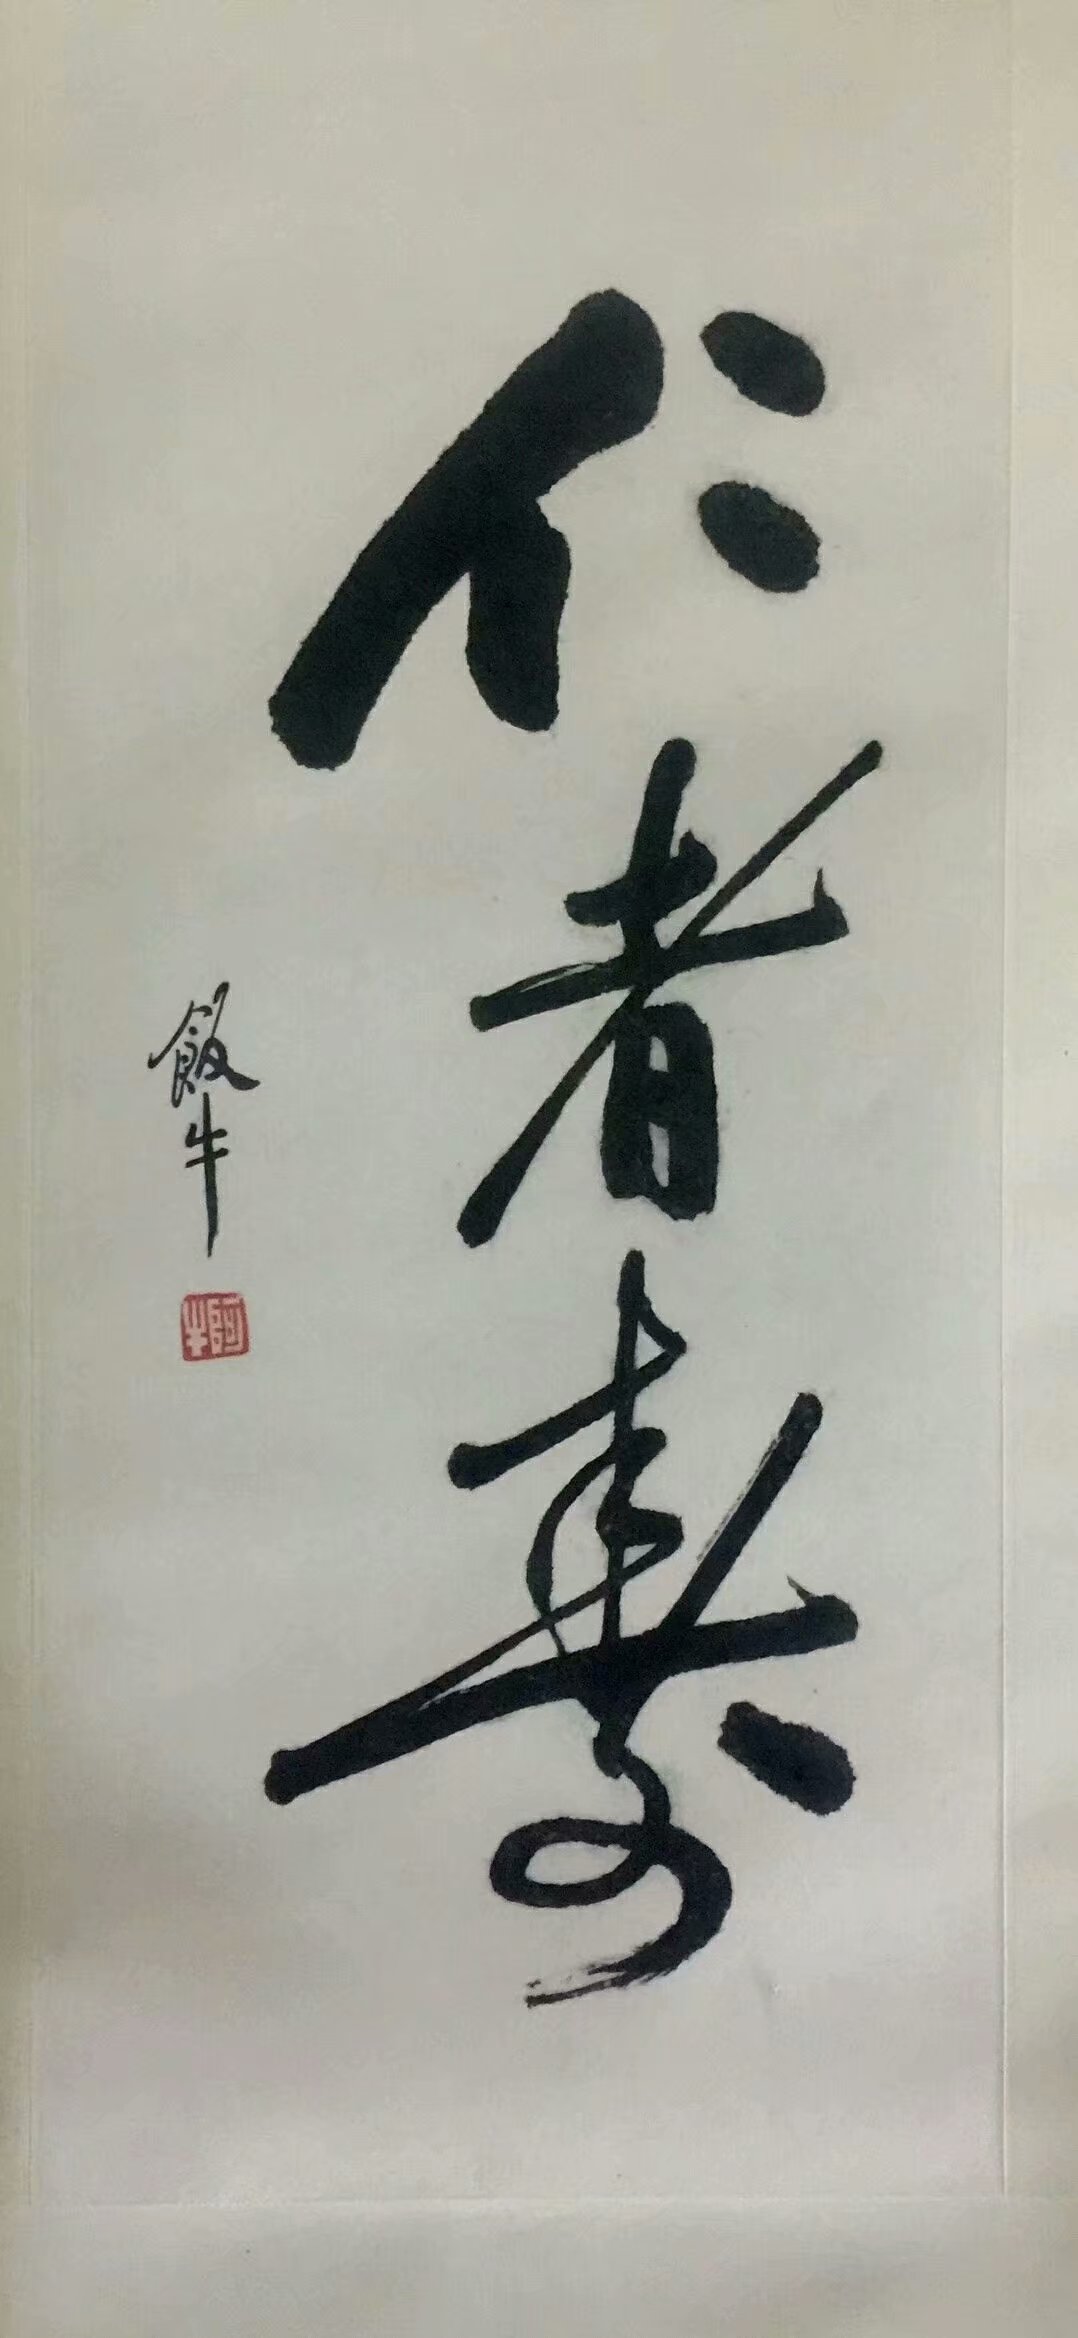 仁者寿
飯牛